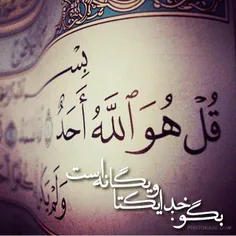 بِسْ
قُلْ هُوَ ٱللَّهُ أَحَدٌ
وَلَمْ يَكُن
بگو: خدا یکتا و یگانه است